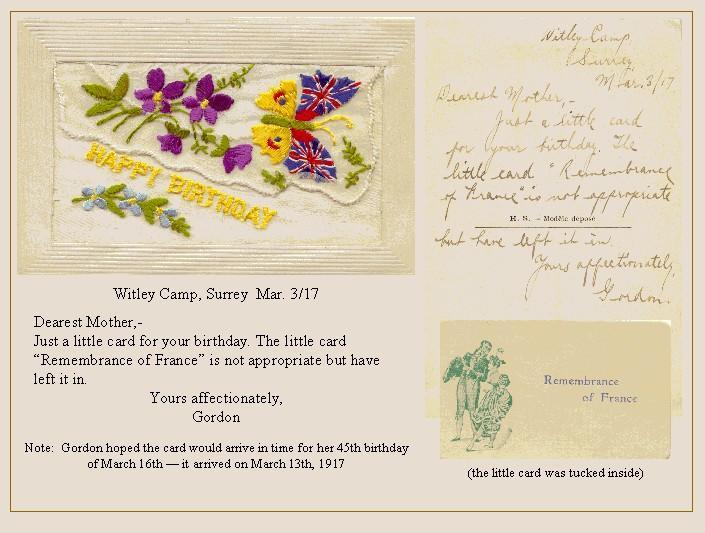 HAPPY BIRTHDAY
Witley Camp, Surrey Mar. 3/17
Dearest Mother,-
Just a little card for your birthday. The little card
“Remembrance of France” is not appropriate but have
left it in.
Yours affectionately,
Gordon
Note: Gordon hoped the card would arrive in time for her 45th birthday
of March 16th — it arrived on March 13th, 1917
Witley Camp,
Surrey
Mar. 3/17
Dearest Mother,-
Just a little card
for your birthday. The
little card "Remembrance
of France" is not appropriate
H. S. - Modèle déposé
but have left it in.
Yours affectionately,
Gordon.
Remembrance
of France
(the little card was tucked inside)